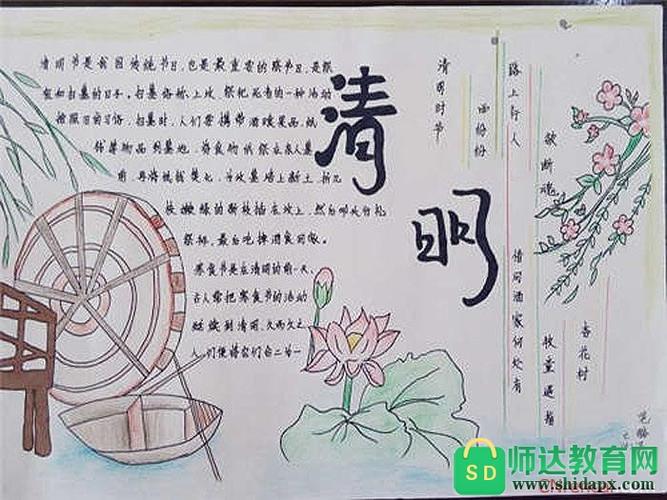 清明节是我国传统节日，也是最重要的祭节日，是祭
祖和扫墓的日子。扫墓俗称上坟，祭祀死者的一种活动
按照旧的习俗，扫墓时，人们要携带酒食果品，纸
钱等物品到墓地，将食物供祭在亲人墓
前，再将纸钱焚化，为坟墓培上新土，折几
枝嫩绿的新枝插在坟上，然后叩头行礼
祭拜，最后吃掉酒食回家。
寒食节是在清明的前一天，
古人常把寒食节的活动
延续到清明，久而久之，
人们便将它们合二为一
清明
清明时节
雨纷纷
路上行人
欲断魂
借问酒家何处有
牧童遥指
杏花村
SD
师达教育网
www.shidapx.com